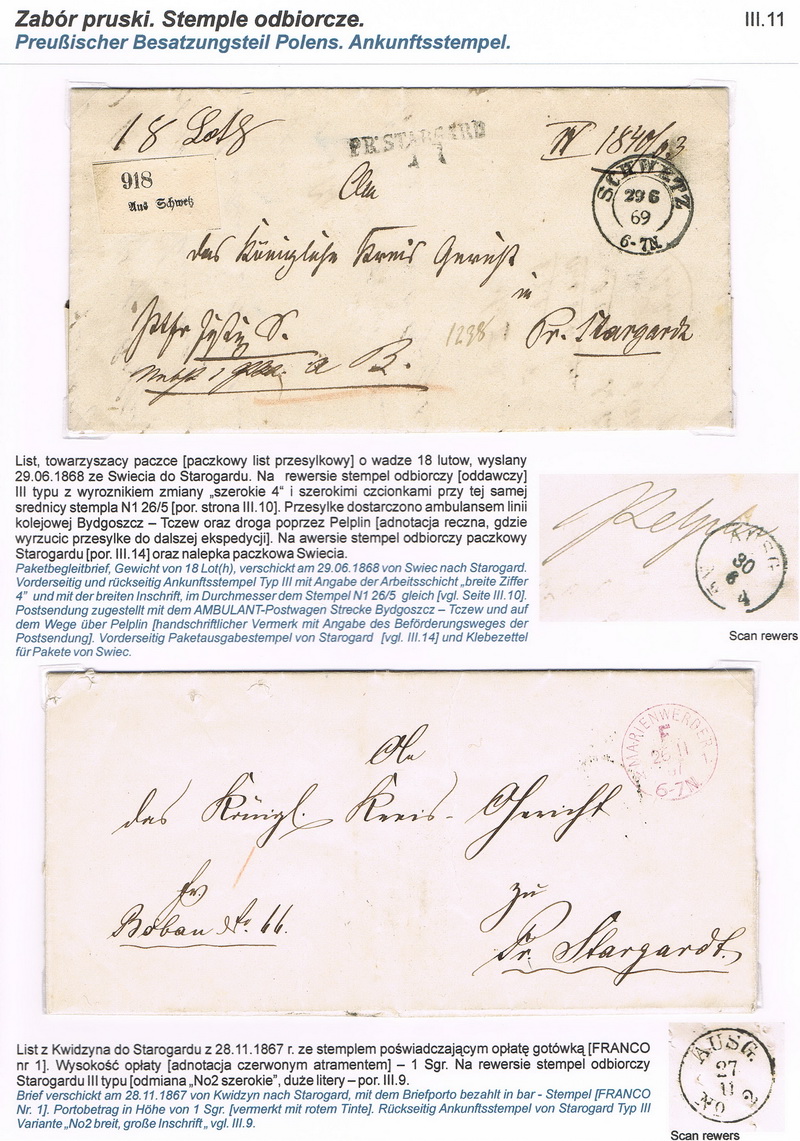 Zabór pruski. Stemple odbiorcze.
III.11
Preußischer Besatzungsteil Polens. Ankunftsstempel.
18 Loth
PR. STARGARD
918
Aus Schwetz
SCHWETZ
29 6
69
6-7N.
An
das Königliche Kreis Gericht
in
Pr. Stargardt
1238
a B.
List, towarzyszacy paczce [paczkowy list przesylkowy] o wadze 18 lutow, wyslany
29.06.1868 ze Swiecia do Starogardu. Na rewersie stempel odbiorczy [oddawczy]
III typu z wyroznikiem zmiany „szerokie 4“ i szerokimi czcionkami przy tej samej
srednicy stempla N1 26/5 [por. strona III.10]. Przesylke dostarczono ambulansem linii
kolejowej Bydgoszcz – Tczew oraz droga poprzez Pelplin [adnotacja reczna, gdzie
wyrzucic przesylke do dalszej ekspedycji]. Na awersie stempel odbiorczy paczkowy
Starogardu [por. III.14] oraz nalepka paczkowa Swiecia.
Paketbegleitbrief, Gewicht von 18 Lot(h), verschickt am 29.06.1868 von Swiec nach Starogard.
Vorderseitig und rückseitig Ankunftsstempel Typ III mit Angabe der Arbeitsschicht „breite Ziffer
4“ und mit der breiten Inschrift, im Durchmesser dem Stempel N1 26/5 gleich [vgl. Seite III.10].
Postsendung zugestellt mit dem AMBULANT-Postwagen Strecke Bydgoszcz – Tczew und auf
dem Wege über Pelplin [handschriftlicher Vermerk mit Angabe des Beförderungsweges der
Postsendung]. Vorderseitig Paketausgabestempel von Starogard [vgl. III.14] und Klebezettel
für Pakete von Swiec.
Pelplin
30
6
4
Scan rewers
MARIENWERDER
F
6-7N.
An
das Königl. Kreis-Gericht
zu
Boban No. 66.
Pr. Stargardt.
List z Kwidzyna do Starogardu z 28.11.1867 r. ze stemplem poświadczającym opłatę gotówką [FRANCO
nr 1]. Wysokość opłaty [adnotacja czerwonym atramentem] – 1 Sgr. Na rewersie stempel odbiorczy
Starogardu III typu [odmiana „No2 szerokie”, duże litery – por. III.9.
Brief verschickt am 28.11.1867 von Kwidzyn nach Starogard, mit dem Briefporto bezahlt in bar - Stempel [FRANCO
Nr. 1]. Portobetrag in Höhe von 1 Sgr. [vermerkt mit rotem Tinte]. Rückseitig Ankunftsstempel von Starogard Typ III
Variante „No2 breit, große Inschrift„ vgl. III.9.
AUSG.
27
11
No 2
Scan rewers